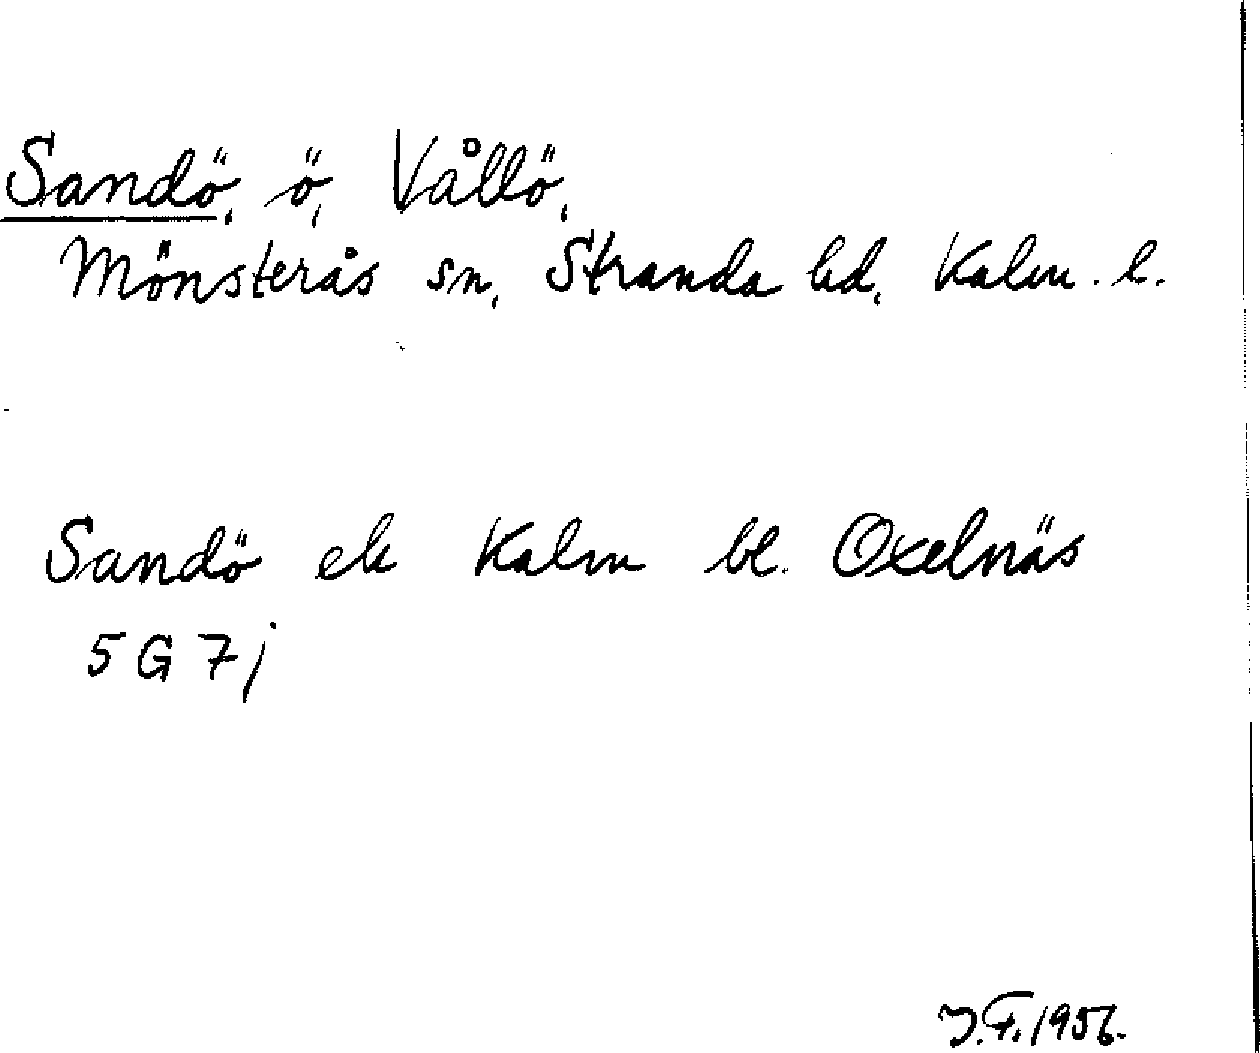 Sandö, ö, Vållö,
Mönsterås sn, Stranda hd, Kalm. l.
Sandö ek Kalm bl. Oxelnäs
5 G 7 j
J.F. 1956.